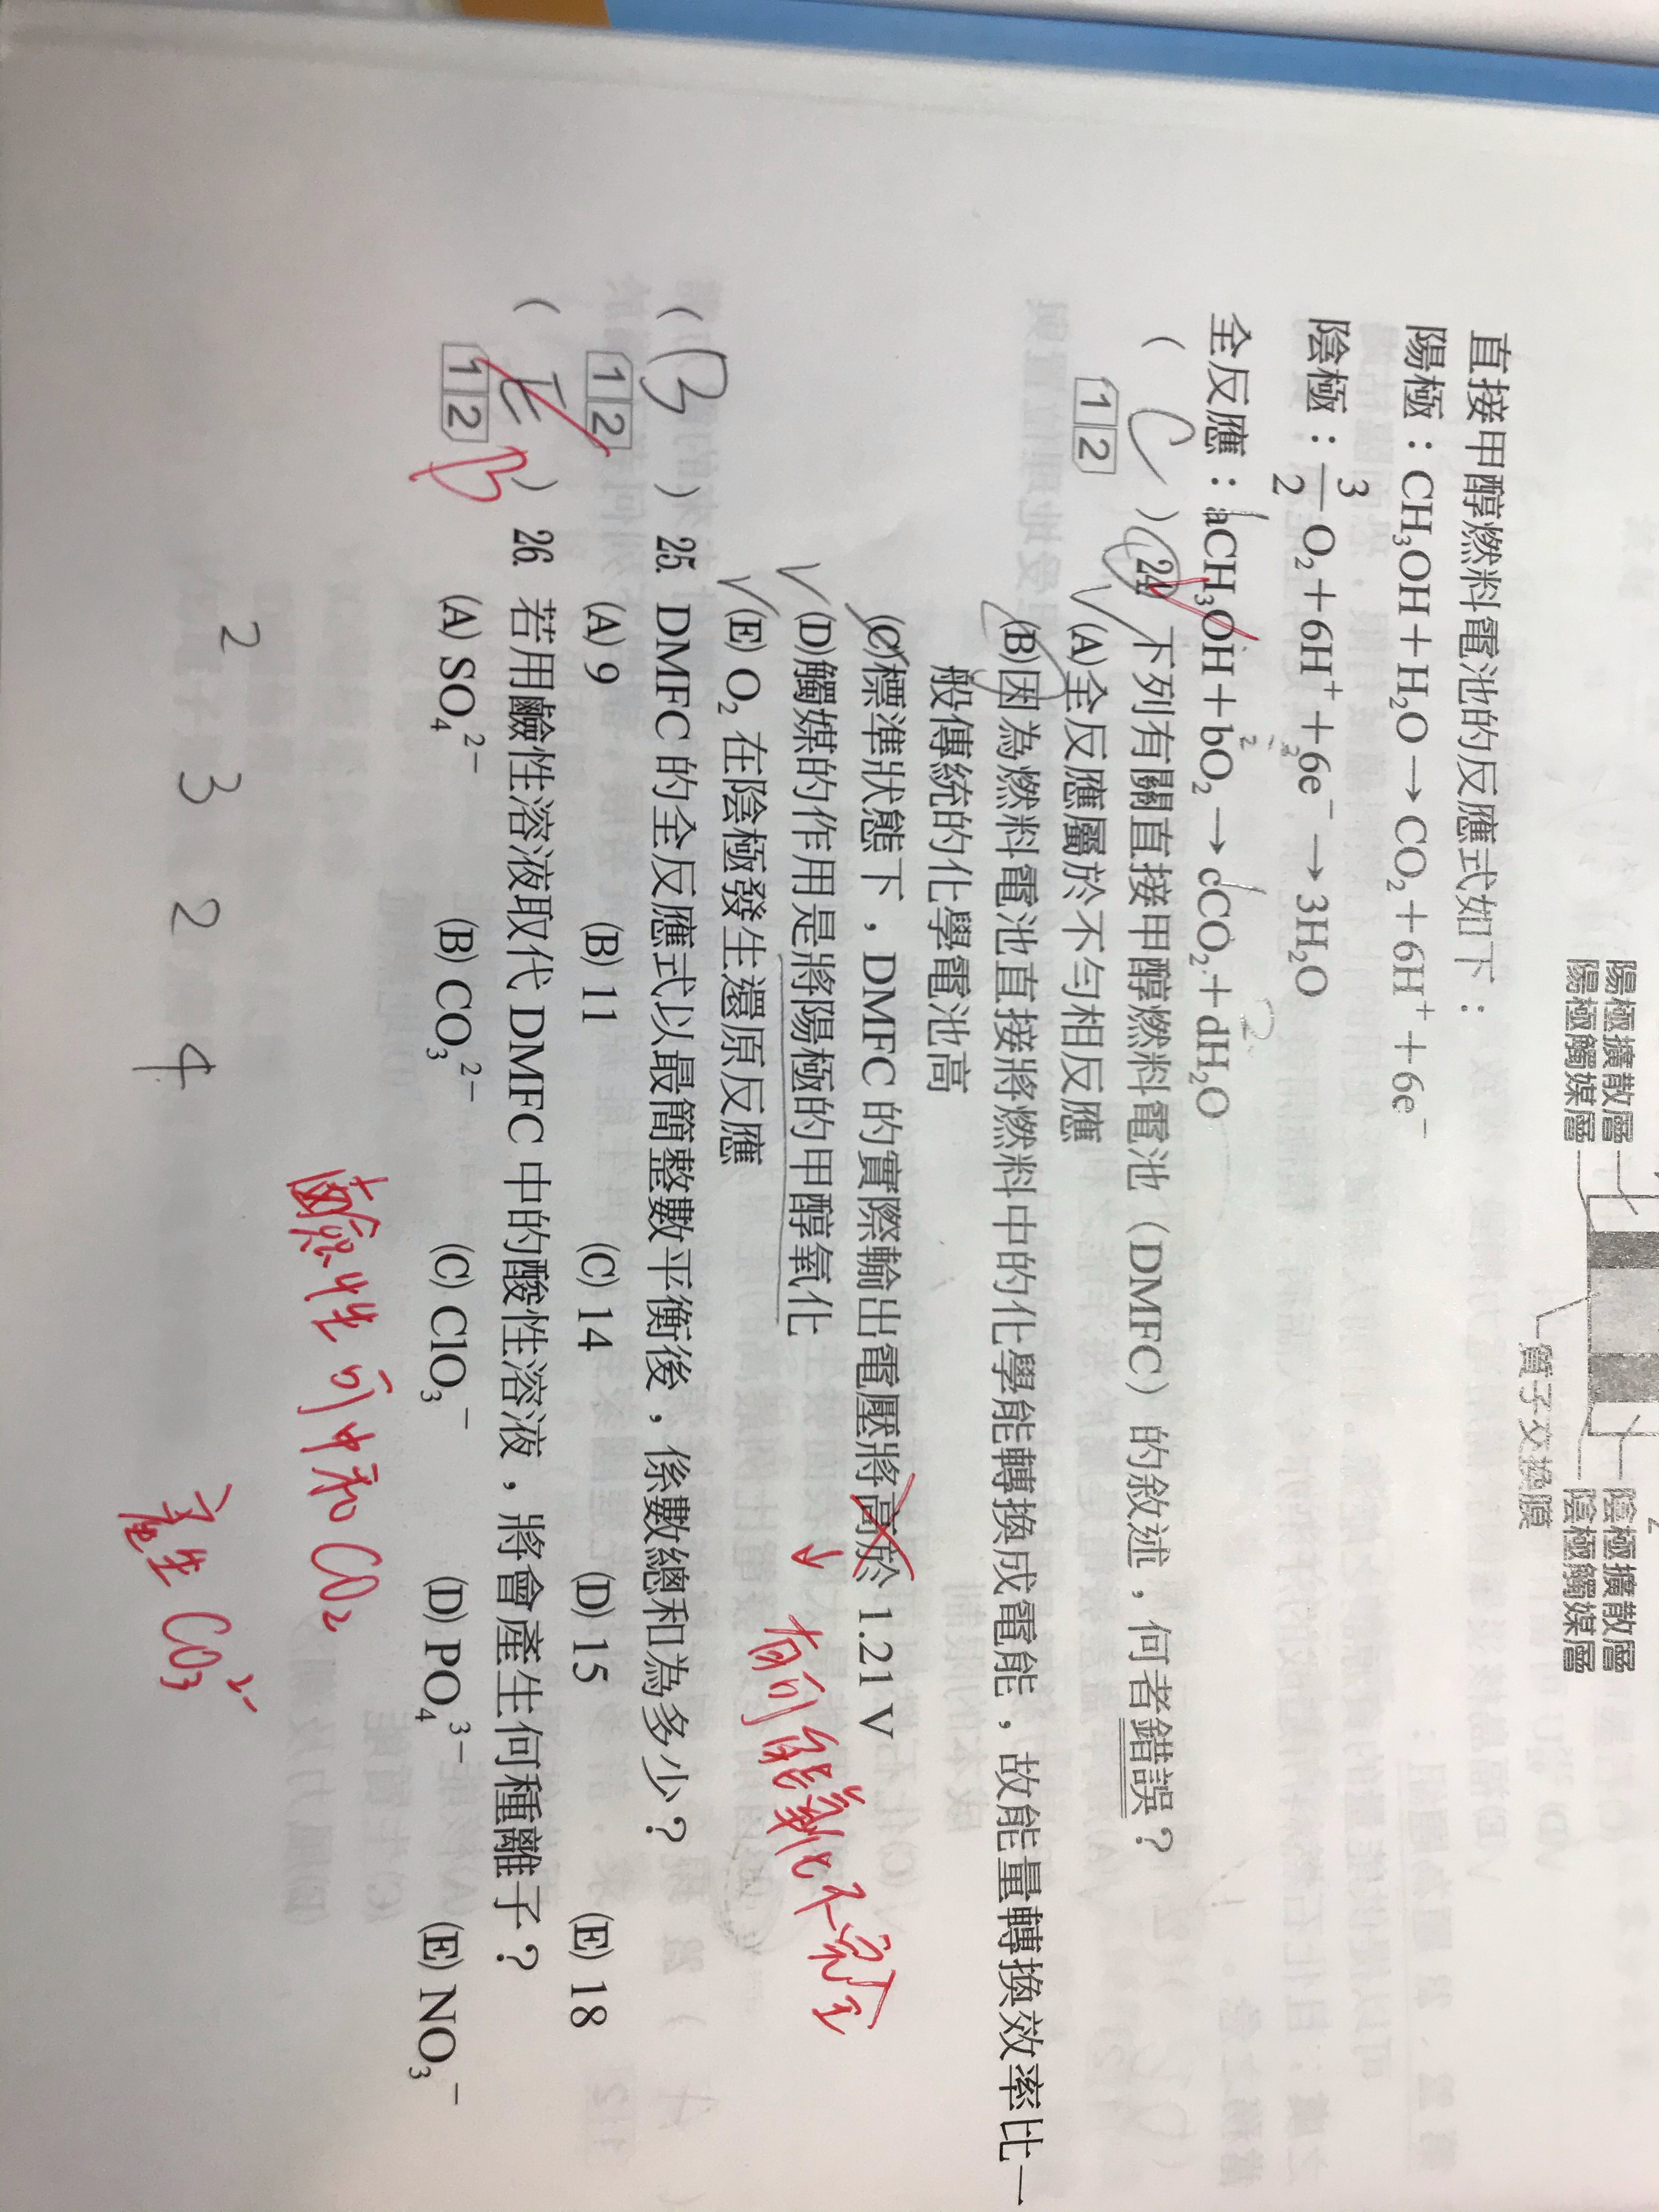 陽極擴散層
陽極觸媒層
陰極擴散層
陰極觸媒層
質子交換膜
直接甲醇燃料電池的反應式如下：
陽極：CH₃OH＋H₂O→CO₂＋6H⁺＋6e⁻
陰極：3/2 O₂＋6H⁺＋6e⁻→3H₂O
全反應：aCH₃OH＋bO₂→cCO₂＋dH₂O
( C ) 24. 下列有關直接甲醇燃料電池（DMFC）的敘述，何者錯誤？
1 2
(A)全反應屬於不勻相反應
(B)因為燃料電池直接將燃料中的化學能轉換成電能，故能量轉換效率比一
般傳統的化學電池高
(C)標準狀態下，DMFC 的實際輸出電壓將高於 1.21 V
有可能氧化不完全
(D)觸媒的作用是將陽極的甲醇氧化
(E) O₂ 在陰極發生還原反應
( B ) 25. DMFC 的全反應式以最簡整數平衡後，係數總和為多少？
1 2
(A) 9 (B) 11 (C) 14 (D) 15 (E) 18
( E ) B 26. 若用鹼性溶液取代 DMFC 中的酸性溶液，將會產生何種離子？
1 2
(A) SO₄²⁻ (B) CO₃²⁻ (C) ClO₃⁻ (D) PO₄³⁻ (E) NO₃⁻
鹼性可中和 CO₂
產生 CO₃²⁻
2 3 2 4